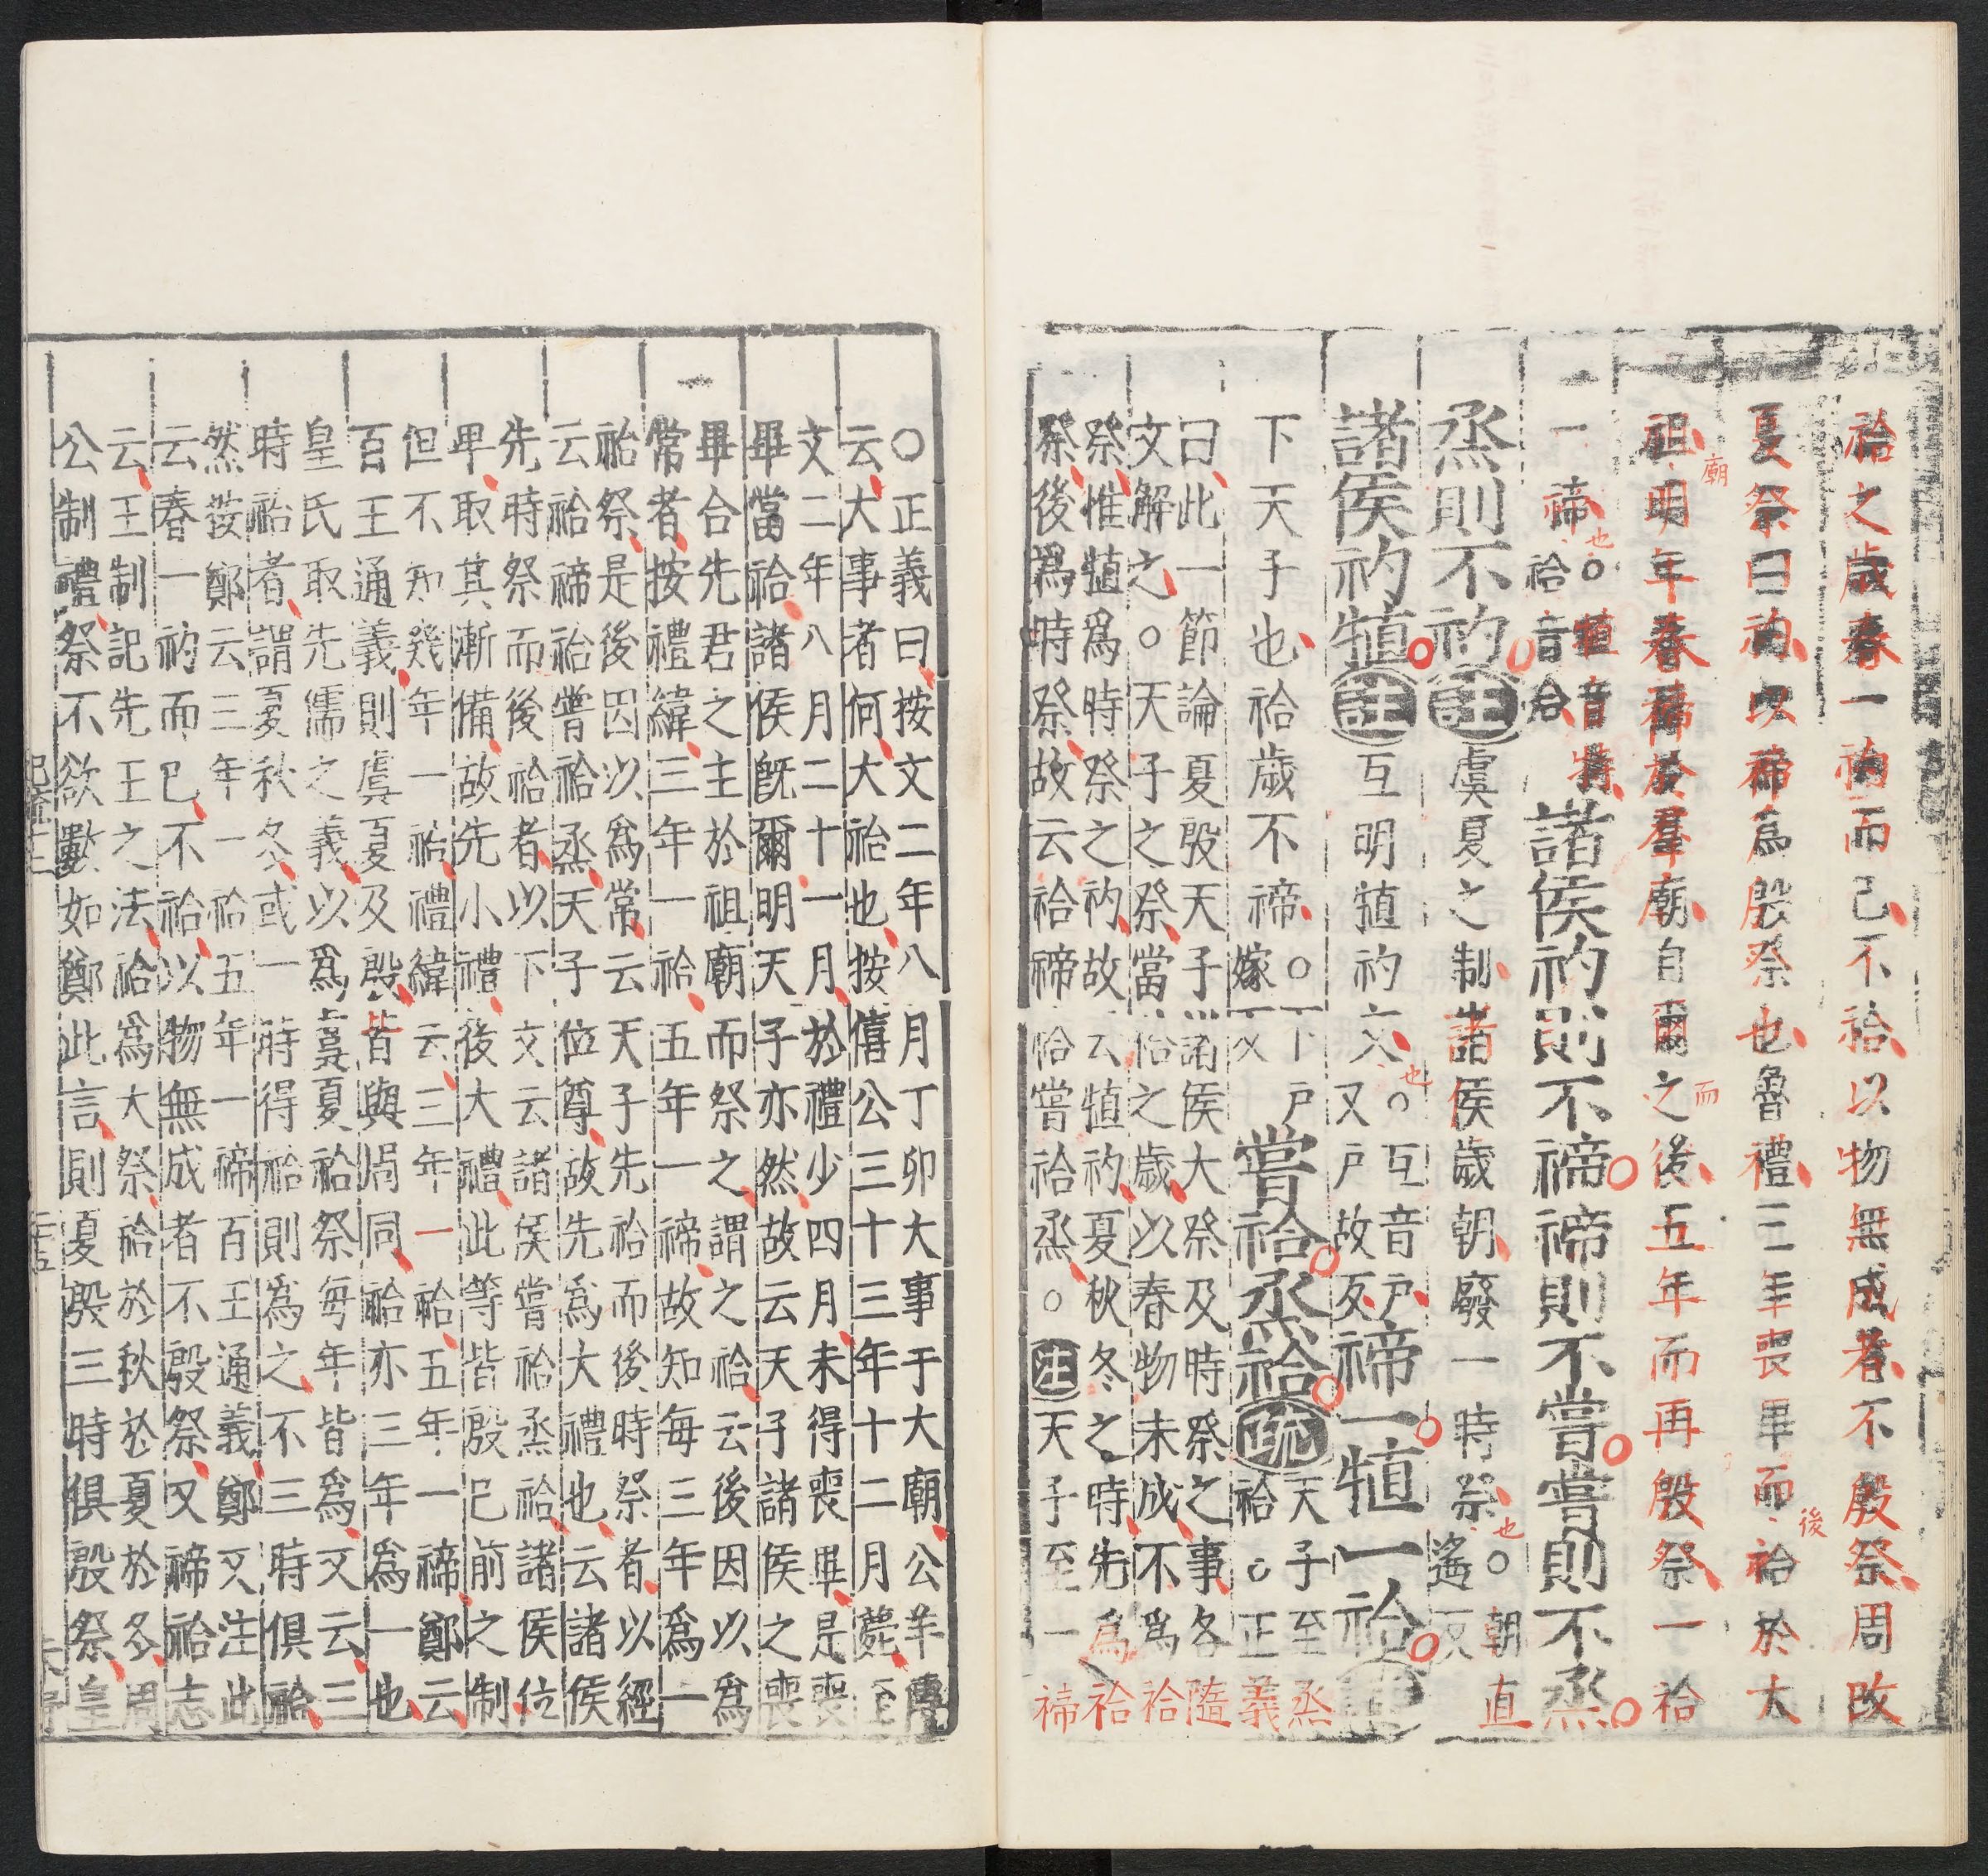 祫之歲春一礿而已不祫以物無成者不殷祭周改
夏祭曰礿以禘爲殷祭也魯禮三年喪畢而後祫於大
祖廟明年春禘於羣廟自爾之後而五年而再殷祭一祫
一禘也○犆音特
祫音洽
諸侯礿則不禘禘則不嘗嘗則不烝
烝則不礿註虞夏之制諸侯歲朝廢一時祭也○朝直
遙反
諸侯礿犆註互明犆礿文也○互音戶
又戶故反
禘一犆一祫註
下天子也祫歲不禘○下戶
嫁反
嘗祫烝祫疏天子至烝
祫○正義
曰此一節論夏殷天子諸侯大祭及時祭之事各隨
文解之○天子之祭當祫之歲以春物未成不爲祫
祭惟犆爲時祭之礿故云犆礿夏秋冬之時先爲祫
祭後爲時祭故云祫禘祫嘗祫烝○注天子至一禘
○正義曰按文二年八月丁卯大事于大廟公羊傳
云大事者何大祫也按僖公三十三年十二月薨至
文二年八月二十一月於禮少四月未得喪畢是喪
畢當祫諸侯旣爾明天子亦然故云天子諸侯之喪
畢合先君之主於祖廟而祭之謂之祫云後因以爲
常者按禮緯三年一祫五年一禘故知每三年爲一
祫祭是後因以爲常云天子先祫而後時祭者以經
云祫禘祫嘗祫烝天子位尊故先爲大禮也云諸侯
先時祭而後祫者以下文云諸侯嘗祫烝祫諸侯位
卑取其漸備故先小禮後大禮此等皆殷已前之制
但不知幾年一祫禮緯云三年一祫五年一禘鄭云
百王通義則虞夏及殷皆與周同祫亦三年爲一也
皇氏取先儒之義以爲虞夏祫祭每年皆爲又云三
時祫者謂夏秋冬或一時得祫則爲之不三時俱祫
然按鄭云三年一祫五年一禘百王通義鄭又注此
云春一礿而已不祫以物無成者不殷祭又禘祫志
云王制記先王之法祫爲大祭祫於秋於夏於冬周
公制禮祭不欲數如鄭此言則夏殷三時俱殷祭皇